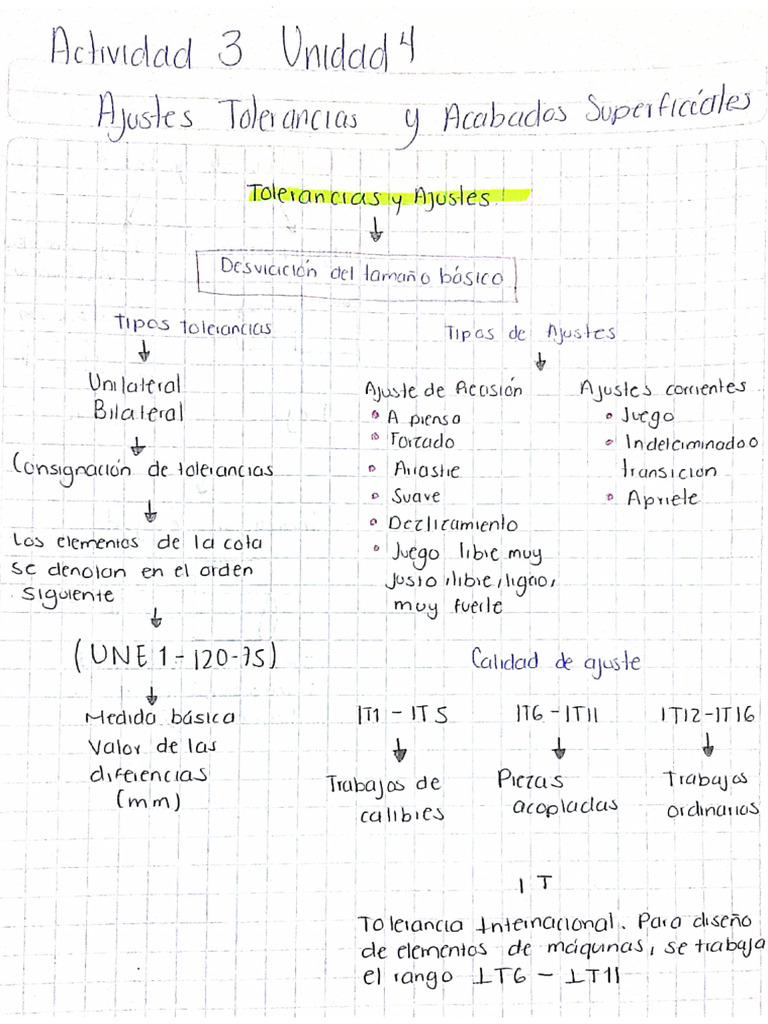 Actividad 3 Unidad 4
Ajustes Tolerancias y Acabados Superficiales
Tolerancias y Ajustes
Desviación del tamaño básico
Tipos tolerancias
Unilateral
Bilateral
Consignación de tolerancias
Los elementos de la cota
se denotan en el orden
siguiente
(UNE 1-120-75)
Medida básica
Valor de las
diferencias
(mm)
Tipos de Ajustes
Ajuste de
• A piensa
• Forzado
• Arrastre
• Suave
• Dezlizamiento
• Juego libre muy
justo, libre, ligno,
muy fuerte
Ajustes corrientes
• Juego
• Indeterminado o
transicion
• Apriete
Calidad de ajuste
IT1 - IT5
Trabajos de
calibres
IT6 - IT11
Piezas
acopladas
IT12-IT16
Trabajos
ordinarios
IT
Tolerancia Internacional. Para diseño
de elementos de máquinas, se trabaja
el rango IT6 - IT11